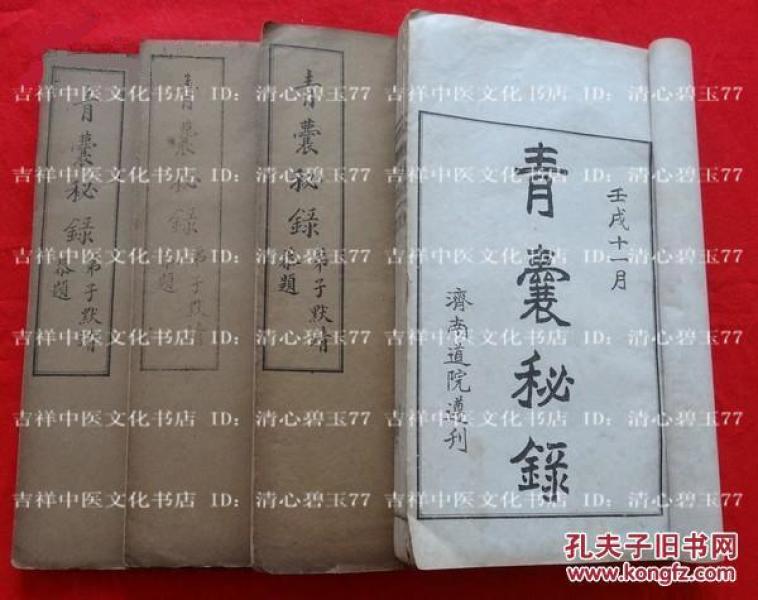 青囊秘録
弟子默靖
恭題
青囊秘録
弟子默靖
恭題
青囊秘録
弟子默靖
恭題
壬戌十一月
青囊秘録
濟南道院遵刊
吉祥中医文化书店 ID：清心碧玉77
吉祥中医文化书店 ID：清心碧玉77
吉祥中医文化书店 ID：清心碧玉77
吉祥中医文化书店 ID：清心碧玉77
吉祥中医文化书店 ID：清心碧玉77
吉祥中医文化书店 ID：清心碧玉77
吉祥中医文化书店 ID：清心碧玉77
吉祥中医文化书店 ID：清心碧玉77
吉祥中医文化书店 ID：清心碧玉77
吉祥中医文化书店 ID：清心碧玉77
吉祥中医文化书店 ID：清心碧玉77
吉祥中医文化书店 ID：清心碧玉77
孔夫子旧书网
www.kongfz.com